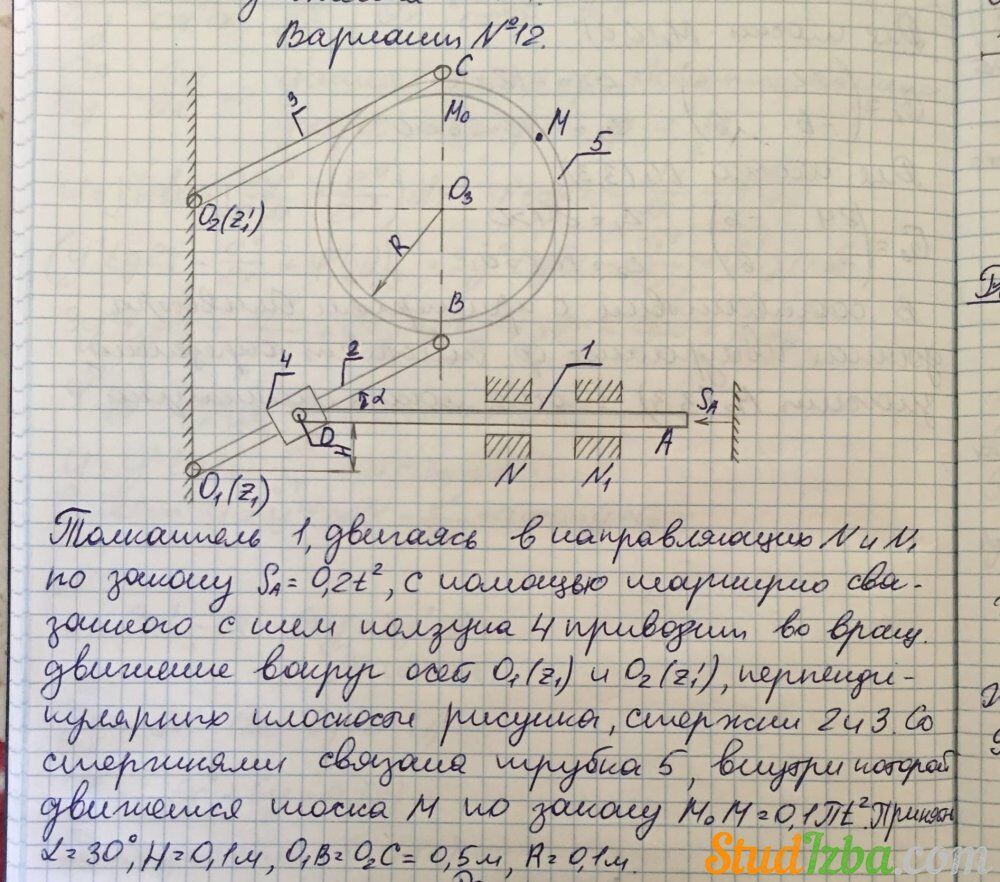 Вариант №12.
C
3
M₀
M
5
O₂(z₁')
O₃
R
B
4
2
1
α
D
H
S_A
A
O₁(z₁)
N
N₁
Толкатель 1, двигаясь в направляющих N и N₁
по закону S_A = 0,2t², с помощью шарнирно свя-
занного с ним ползуна 4 приводит во вращ.
движение вокруг осей O₁(z₁) и O₂(z₁'), перпенди-
кулярных плоскости рисунка, стержни 2 и 3. Со
стержнями связана трубка 5, внутри которой
движется точка M по закону M₀M = 0,1πt². Принять
α = 30°, H = 0,1 м, O₁B = O₂C = 0,5 м, R = 0,1 м.
StudIzba.com